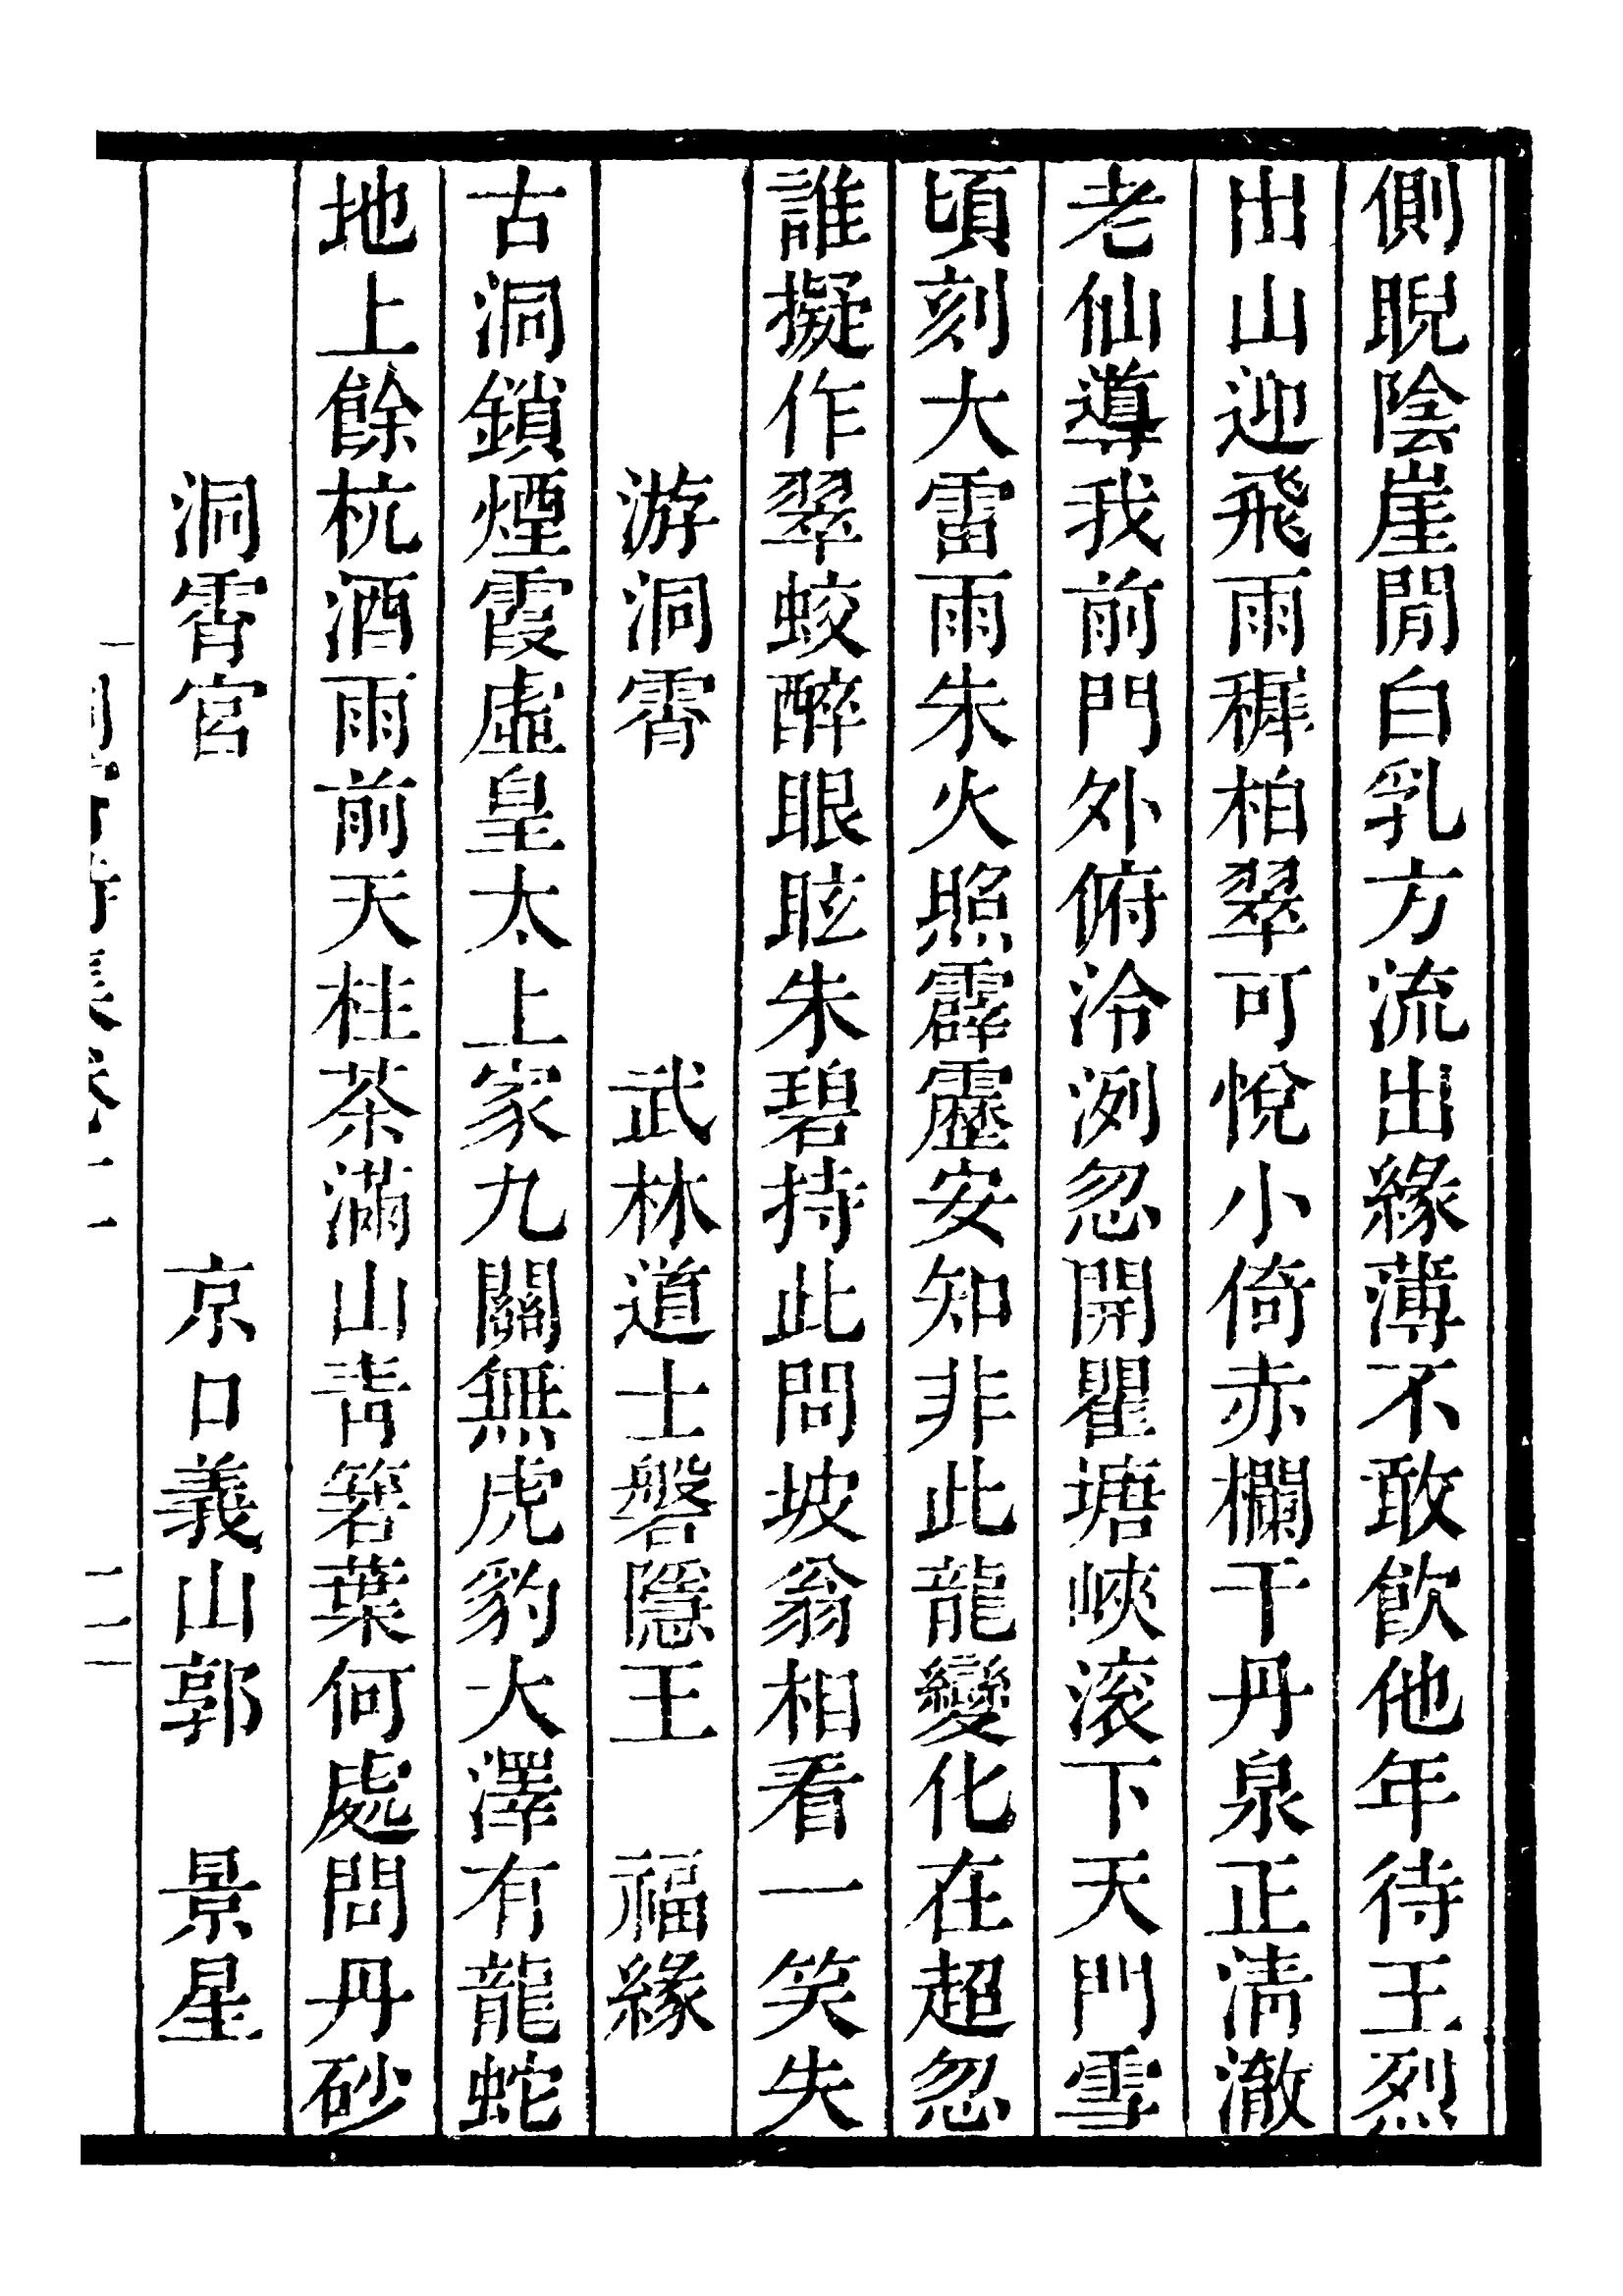 側睨陰崖閒白乳方流出緣薄不敢飲他年待王烈
出山迎飛雨穉柏翠可悅小倚赤欄干丹泉正淸澈
老仙導我前門外俯泠洌忽開瞿塘峽滚下天門雪
頃刻大雷雨朱火照霹靂安知非此龍變化在超忽
誰擬作翠蛟醉眼眩朱碧持此問坡翁相看一笑失
游洞霄 武林道士磐隱王 福緣
古洞鎖煙霞虛皇太上家九關無虎豹大澤有龍蛇
地上餘杭酒雨前天柱茶滿山靑箬葉何處問丹砂
洞霄宮 京口義山郭 景星